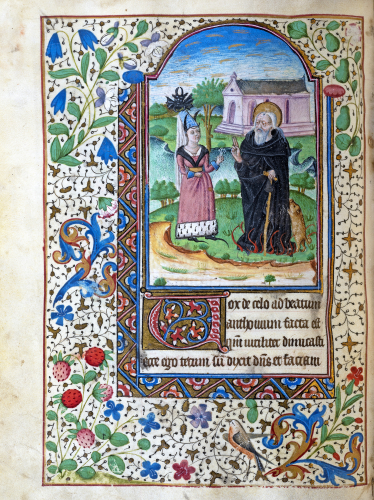 Vox de celo ad beatum
anthonium facta est
qm̄ viriliter dimicasti
ecce ego tecum sū dicit dñs et faciam